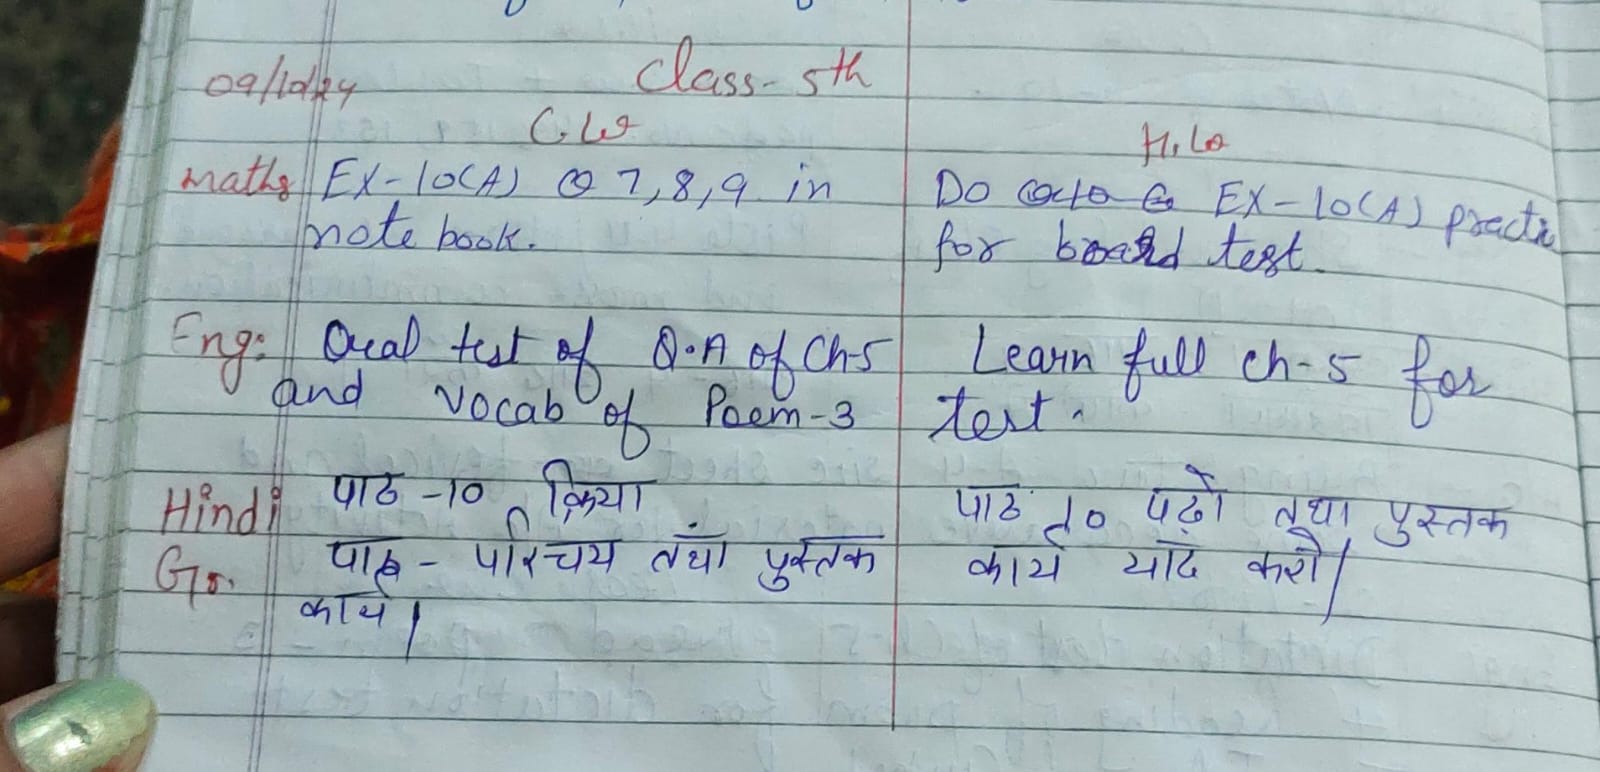 09/10/24 Class- 5th
C.W H.W
Maths EX-10(A) Q 7,8,9 in
note book.
Do EX-10(A) practi
for board test.
Eng: Oral test of Q.A of Ch-5
and vocab of Poem-3
Learn full ch-5 for
test.
Hindi पाठ -10 क्रिया
Gr. पाठ - परिचय तथा पुस्तक
कार्य।
पाठ 10 पढ़ो तथा पुस्तक
कार्य याद करो।